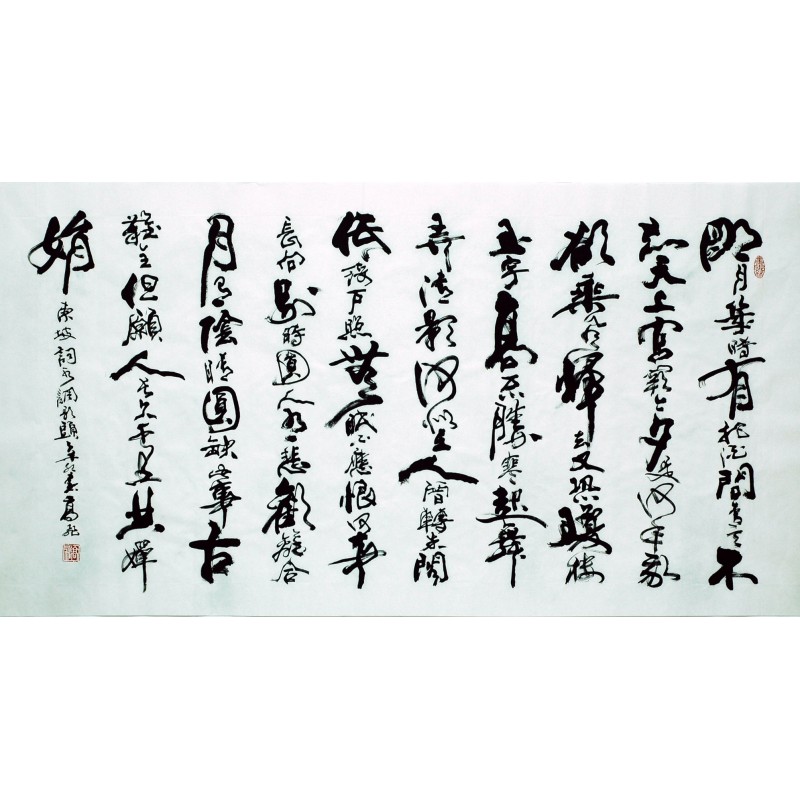 明月幾時有把酒問青天不
知天上宮闕今夕是何年我
欲乘風歸去又恐瓊樓
玉宇高處不勝寒起舞
弄清影何似在人間轉朱閣
低綺戶照無眠不應恨何事
長向別時圓人有悲歡離合
月有陰晴圓缺此事古
難全但願人長久千里共嬋
娟
東坡詞水調歌頭